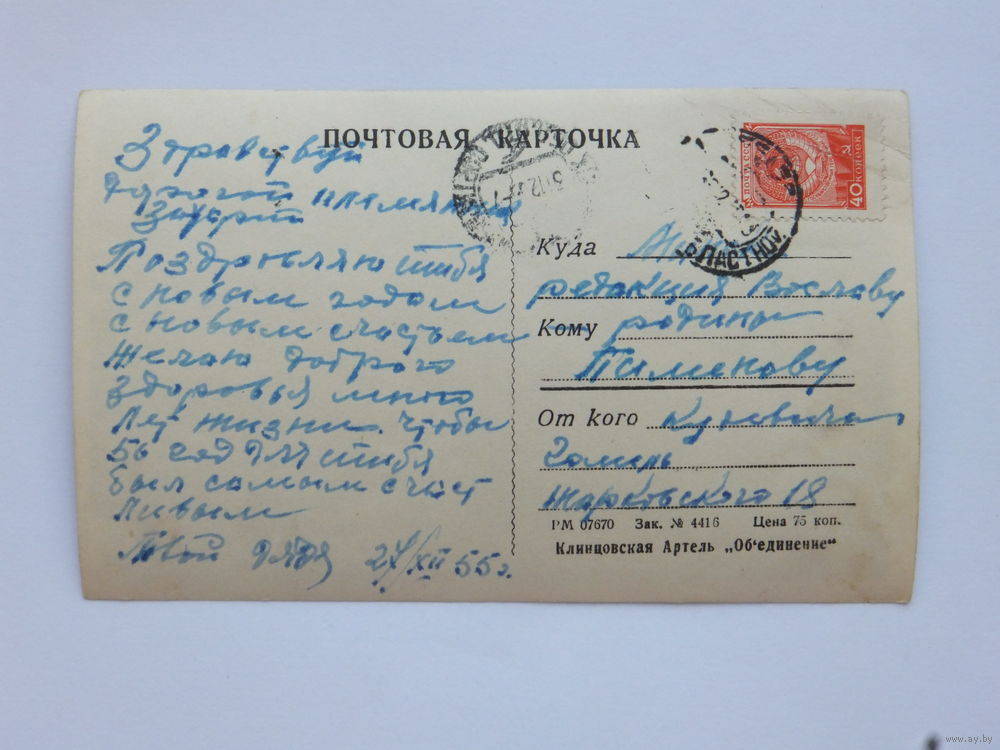 ПОЧТОВАЯ КАРТОЧКА
Здравствуй
дорогой племянник
Захар
Поздровляю тибя
с новым годом
с новым счастьем
Желаю доброго
здоровья много
лет жизни. чтобы
56 год для тибя
был самым счаст
ливым
Твой дядя 27/XII 55г.
ПОЧТА СССР
40 КОПЕЕК
ОБЛАСТНОЙ
Куда
редакция Во славу
Кому родины
Пименову
От кого
Гомель
Жарковского 18
РМ 07670 Зак. № 4416 Цена 75 коп.
Клинцовская Артель „Об'единение"
www.ay.by